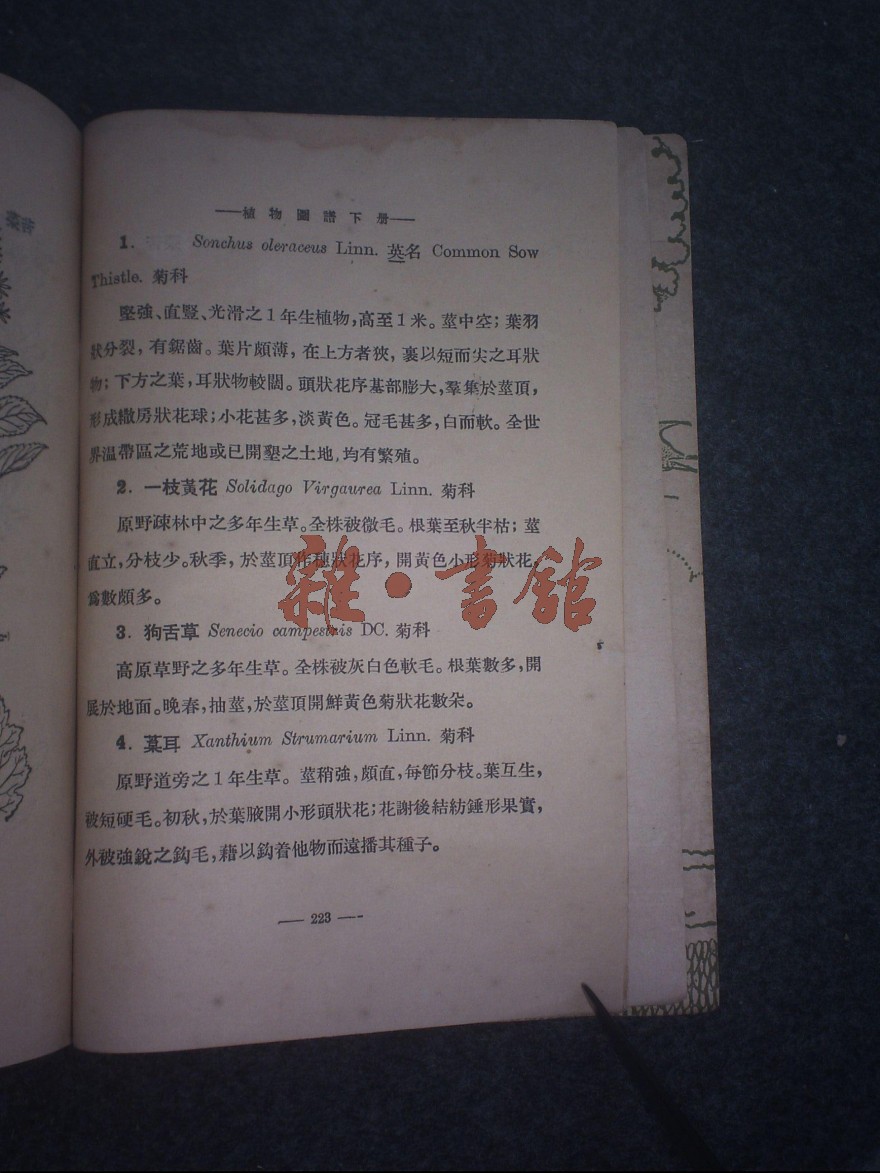 植物圖譜下册
1. Sonchus oleraceus Linn. 英名 Common Sow
Thistle. 菊科
堅強、直豎、光滑之1年生植物,高至1米。莖中空;葉羽
狀分裂,有鋸齒。葉片頗薄,在上方者狹,裹以短而尖之耳狀
物;下方之葉,耳狀物較闊。頭狀花序基部膨大,羣集於莖頂,
形成繖房狀花球;小花甚多,淡黃色。冠毛甚多,白而軟。全世
界温帶區之荒地或已開墾之土地,均有繁殖。
2. 一枝黃花 Solidago Virgaurea Linn. 菊科
原野疎林中之多年生草。全株被微毛。根葉至秋半枯;莖
直立,分枝少。秋季,於莖頂作穗狀花序,開黃色小形菊狀花,
爲數頗多。
3. 狗舌草 Senecio campestris DC. 菊科
高原草野之多年生草。全株被灰白色軟毛。根葉數多,開
展於地面。晚春,抽莖,於莖頂開鮮黃色菊狀花數朵。
4. 葈耳 Xanthium Strumarium Linn. 菊科
原野道旁之1年生草。莖稍強,頗直,每節分枝。葉互生,
被短硬毛。初秋,於葉腋開小形頭狀花;花謝後結紡錘形果實,
外被強銳之鈎毛,藉以鈎着他物而遠播其種子。
223
雜·書館